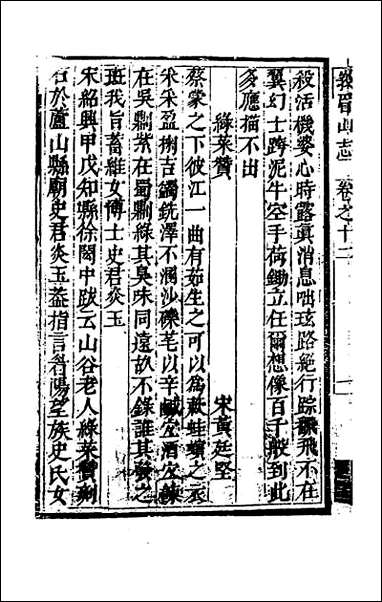 峩眉山志 卷之十二
殺活機婆心時露真消息咄玆路絕行踪飛不在
翼幻士跨泥牛空手荷鋤立任爾想像百千般到此
多應描不出
綠菜贊 宋黃庭堅
蔡蒙之下彼江一曲有茹生之可以為蔌蛙蠙之衣
采采盈掬吉蠲銑澤不溷沙礫芼以辛鹹宜酒宜餗
在吳則紫在蜀則綠其臭味同遠故不錄誰其發之
班我旨蓄維女博士史君炎玉
宋紹興甲戊知縣徐閎中跋云山谷老人綠菜贊刻
石於蘆山縣廟史君炎玉葢指言符陽望族史氏女